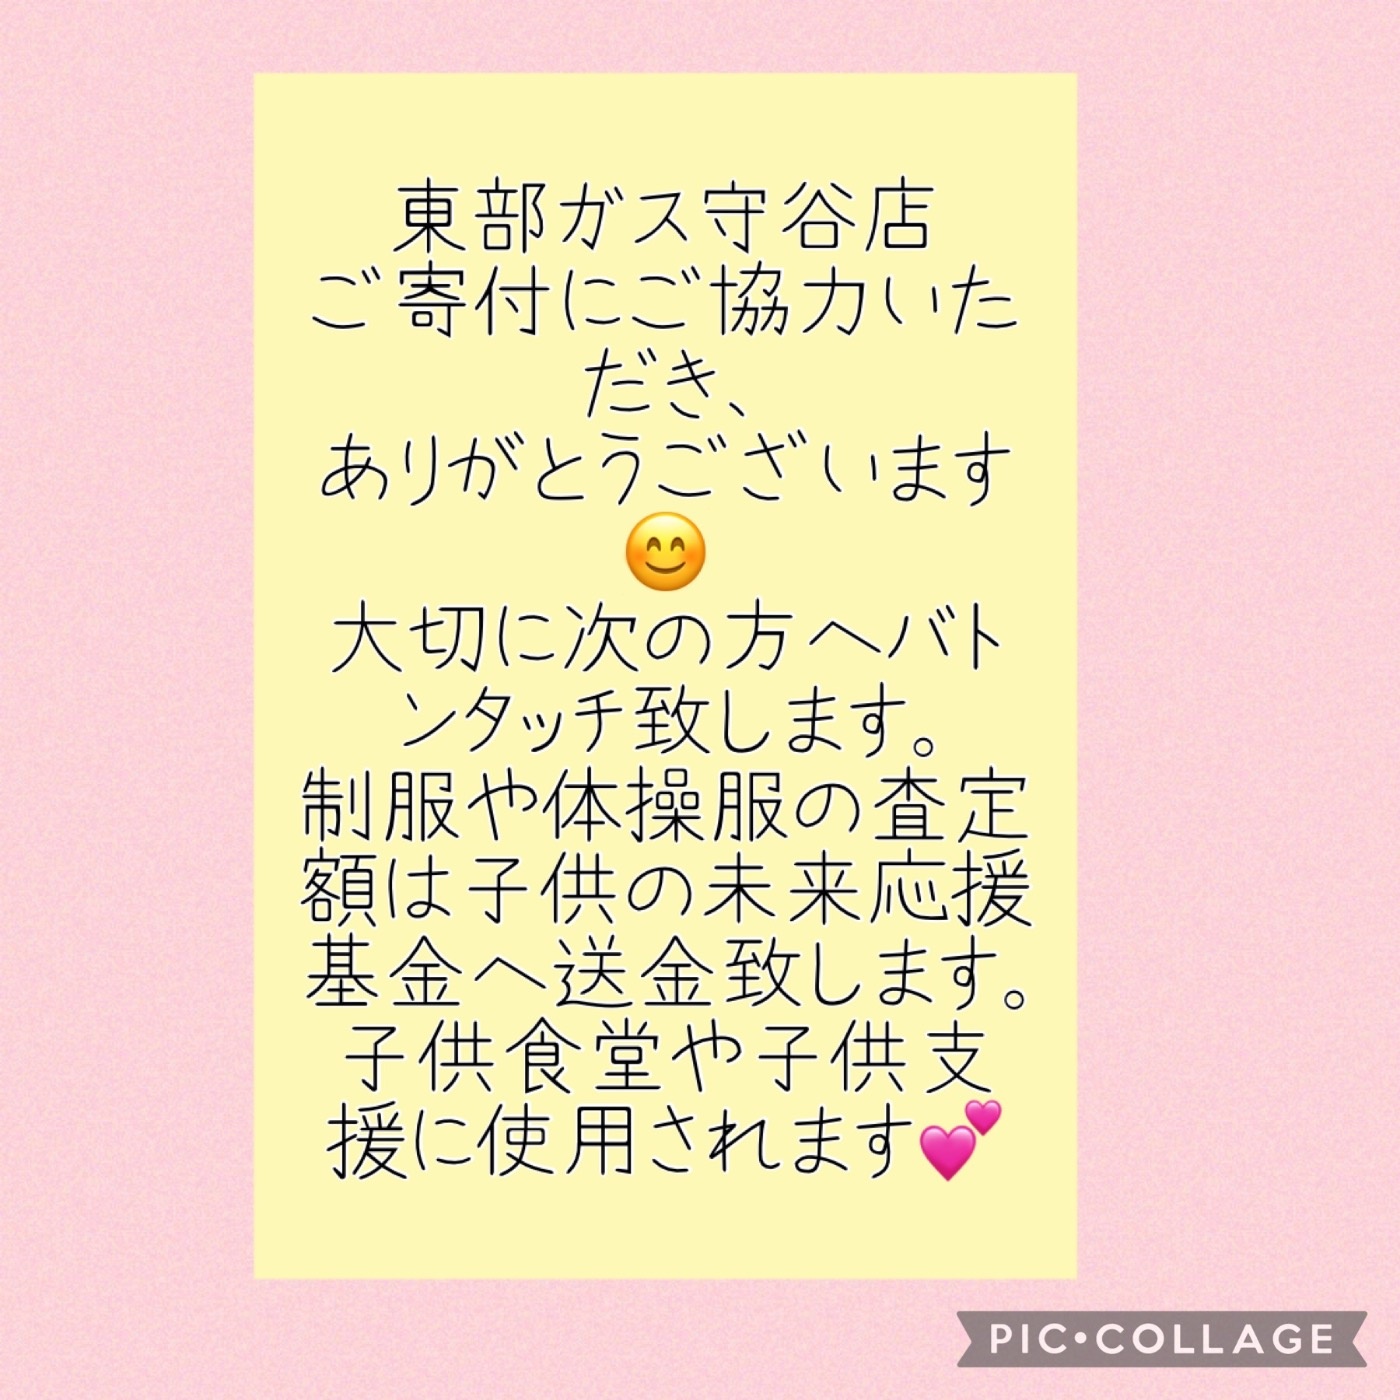 東部ガス守谷店
ご寄付にご協力いた
だき、
ありがとうございます
😊
大切に次の方へバト
ンタッチ致します。
制服や体操服の査定
額は子供の未来応援
基金へ送金致します。
子供食堂や子供支
援に使用されます💕
PIC•COLLAGE